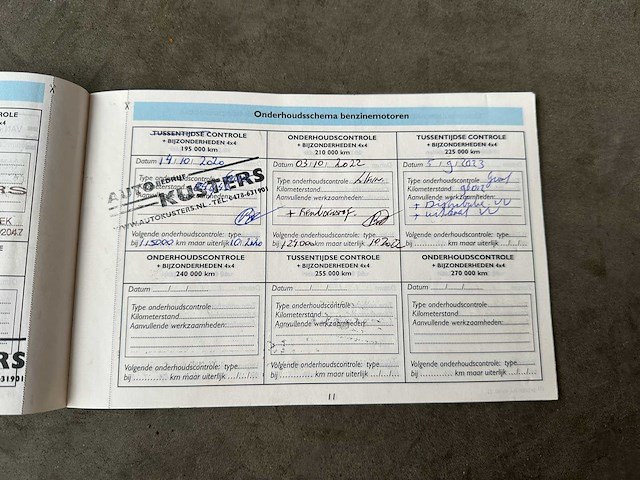 Onderhoudsschema benzinemotoren
TUSSENTIJDSE CONTROLE
+ BIJZONDERHEDEN 4x4
195 000 km
Datum 19/10/2020
AUTOBEDRIJF
KUSTERS
WWW.AUTOKUSTERS.NL TEL. 0478-631901
Volgende onderhoudscontrole: type
bij 115000 km maar uiterlijk 10/2020
ONDERHOUDSCONTROLE
+ BIJZONDERHEDEN 4x4
210 000 km
Datum 03/10/2022
Type onderhoudscontrole
Kilometerstand
Aanvullende werkzaamheden:
Volgende onderhoudscontrole: type
bij 129000 km maar uiterlijk 10/2022
TUSSENTIJDSE CONTROLE
+ BIJZONDERHEDEN 4x4
225 000 km
Datum 5/9/2023
Type onderhoudscontrole groot
Kilometerstand
Aanvullende werkzaamheden:
Volgende onderhoudscontrole: type
bij km maar uiterlijk
ONDERHOUDSCONTROLE
+ BIJZONDERHEDEN 4x4
240 000 km
Datum
Type onderhoudscontrole:
Kilometerstand
Aanvullende werkzaamheden:
Volgende onderhoudscontrole: type
bij km maar uiterlijk
TUSSENTIJDSE CONTROLE
+ BIJZONDERHEDEN 4x4
255 000 km
Datum
Type onderhoudscontrole
Kilometerstand
Aanvullende werkzaamheden:
Volgende onderhoudscontrole: type
bij km maar uiterlijk
ONDERHOUDSCONTROLE
+ BIJZONDERHEDEN 4x4
270 000 km
Datum
Type onderhoudscontrole:
Kilometerstand
Aanvullende werkzaamheden:
Volgende onderhoudscontrole: type
bij km maar uiterlijk
11